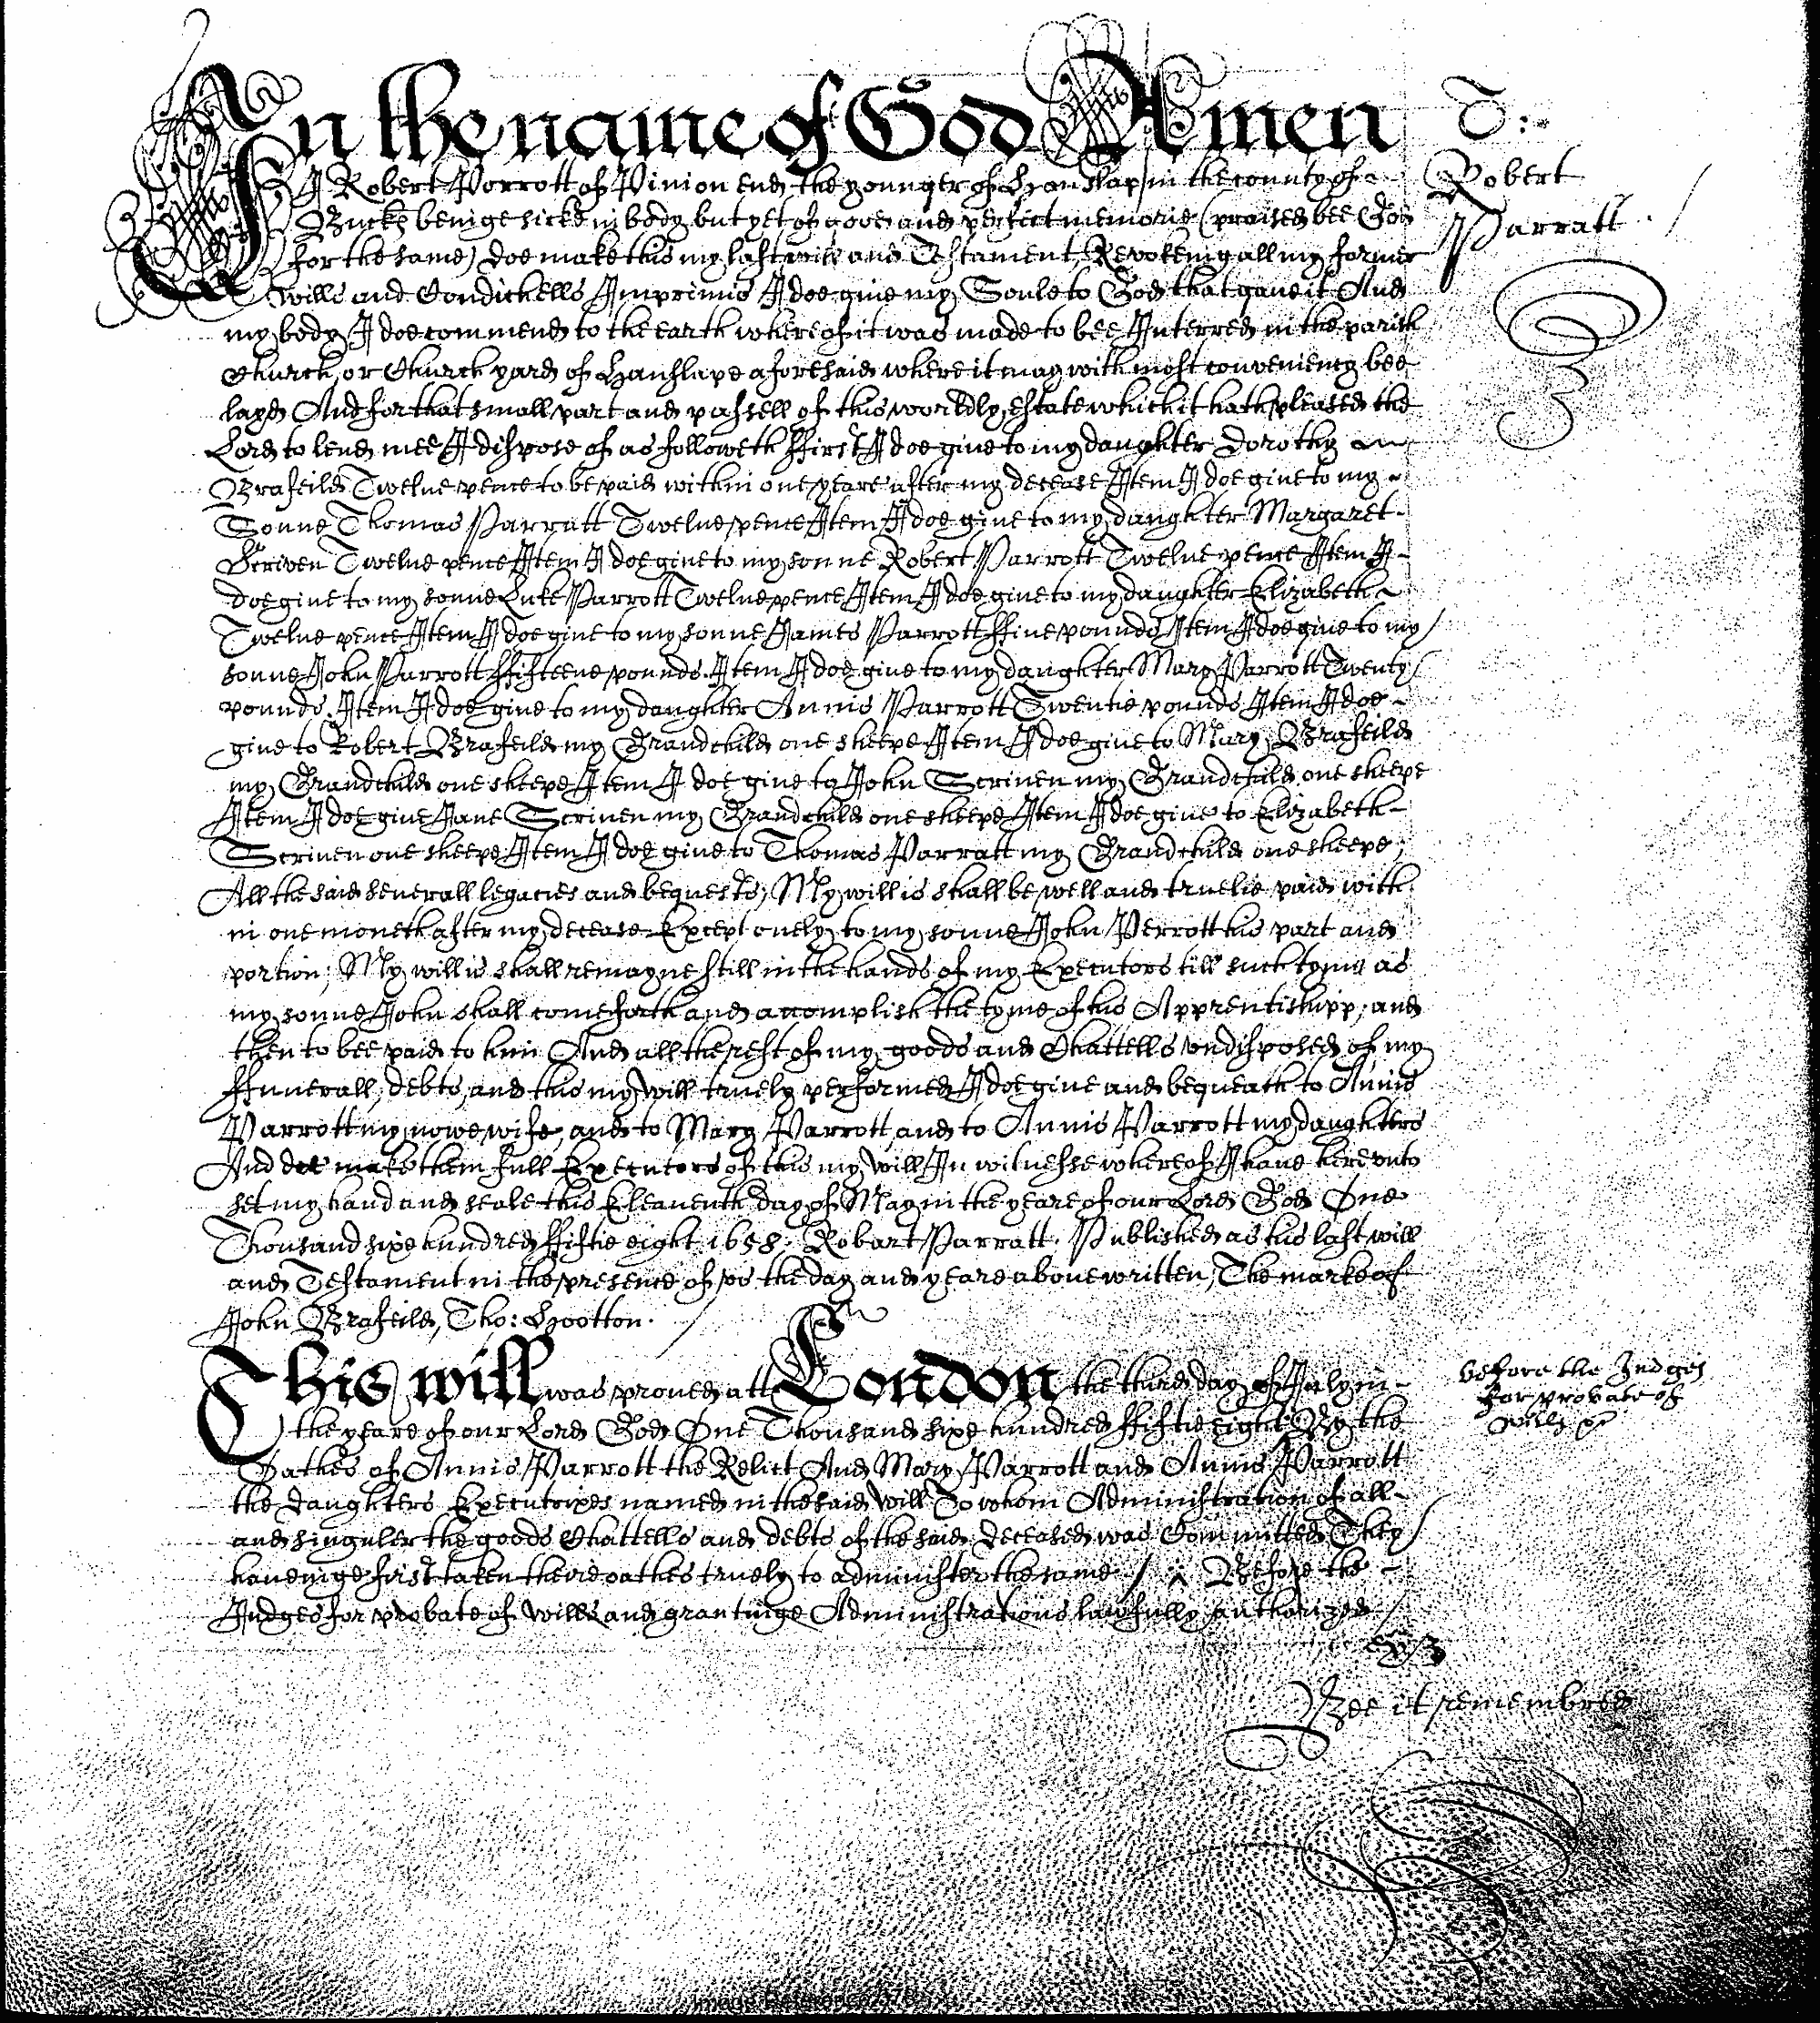 In the name of God Amen
T:
Robert
Parratt
I Robert Porrott of Pinion end the younger of Hanslap in the county of
Bucks beinge sicke in body but yet of good and perfect memorie (praised bee God
for the same) doe make this my last will and Testament, Revokeing all my former
wills and Condickells Imprimis I doe giue my Soule to God that gaue it And
my body I doe commend to the earth whereof it was made to bee Interred in the parish
Church or Church yard of Hanslape aforesaid where it may with most conveniency bee
layd And for that small part and passell of this worldly estate which it hath pleased the
Lord to lend mee I dispose of as followeth ffirst I doe giue to my daughter Dorothy
Brafeild Twelue pence to be paid within one yeare after my decease Item I doe giue to my
Sonne Thomas Parratt Twelue pence Item I doe giue to my daughter Margaret
Scriven Twelue pence Item I doe giue to my sonne Robert Parrott Twelue pence Item I
doe giue to my sonne Luke Parrott Twelue pence Item I doe giue to my daughter Elizabeth
Twelue pence Item I doe giue to my sonne James Parrott ffiue pounds Item I doe giue to my
sonne John Parrott ffifteene pounds. Item I doe giue to my daughter Mary Parrott Twenty
pounds. Item I doe giue to my daughter Annis Parrott Twentie pounds Item I doe
giue to Robert Brafeild my Grandchild one sheepe Item I doe giue to Mary Brafeild
my Grandchild one sheepe Item I doe giue to John Scriuen my Grandchild one sheepe
Item I doe giue Jane Scriuen my Grandchild one sheepe Item I doe giue to Elizabeth
Scriuen one sheepe Item I doe giue to Thomas Parratt my Grandchild one sheepe;
All the said seuerall legacies and bequests; My will is shall be well and truelie paid with
in one moneth after my decease Except onely to my sonne John Perrott his part and
portion; My will is shall remayne still in the hands of my Executors till such tyme as
my sonne John shall come forth and accomplish the tyme of his Apprentishipp; and
then to bee paid to him And all the rest of my goods and Chattells vndisposed of my
ffunerall, debts, and this my will truely performed I doe giue and bequeath to Annis
Parrott my nowe wife, and to Mary Parrott and to Annis Parrott my daughters
And doe make them full Executors of this my Will In witnesse whereof I haue herevnto
set my hand and seale this Eleauenth day of May in the yeare of our Lord God One
Thousand sixe hundred ffiftie eight 1658. Robart Parratt. Published as his last will
and Testament in the presence of vs the day and yeare aboue written, The marke of
John Brafeild, Tho: Hootton.
This will was proued att London the third day of July in
the yeare of our Lord God One Thousand sixe hundred ffiftie eight By the
Oathes of Annis Parrott the Relict And Mary Parrott and Annis Parrott
the daughters Executrixes named in the said Will To whom Administration of all
and singuler the goods Chattells and debts of the said deceased was Committed They
haueinge first taken theire oathes truely to administer the same / Before the
Judges for probate of Wills and grantinge Administrations lawfully authorized
before the Judges
for probate of
wills
Bee it remembred
Image Reference